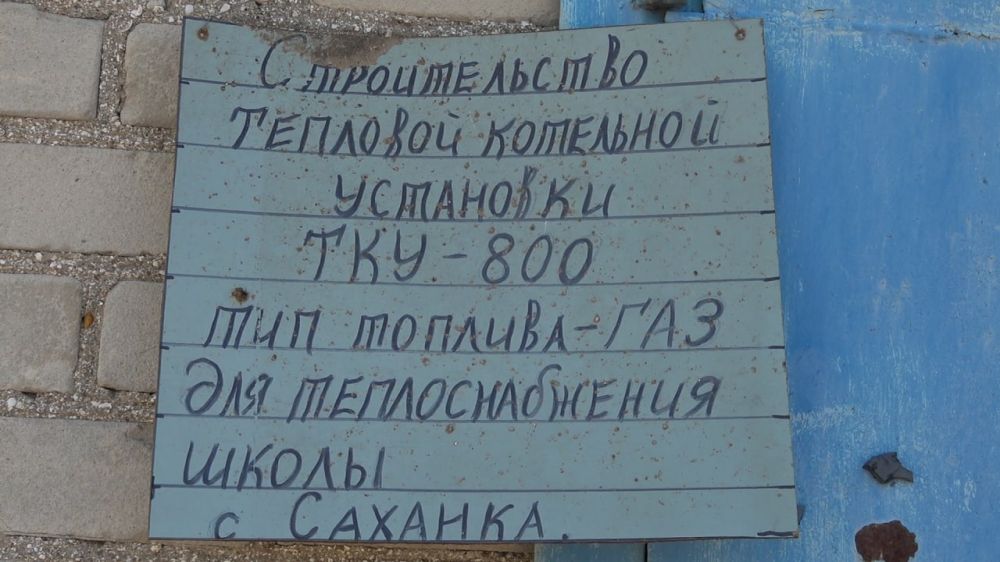 Строительство
тепловой котельной
установки
ТКУ-800
тип топлива-ГАЗ
для теплоснабжения
школы
с Саханка.